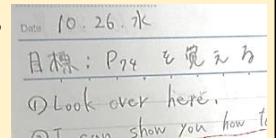 Date 10.26.水
目標：P74 を覚える
①Look over here.
②I can show you how to